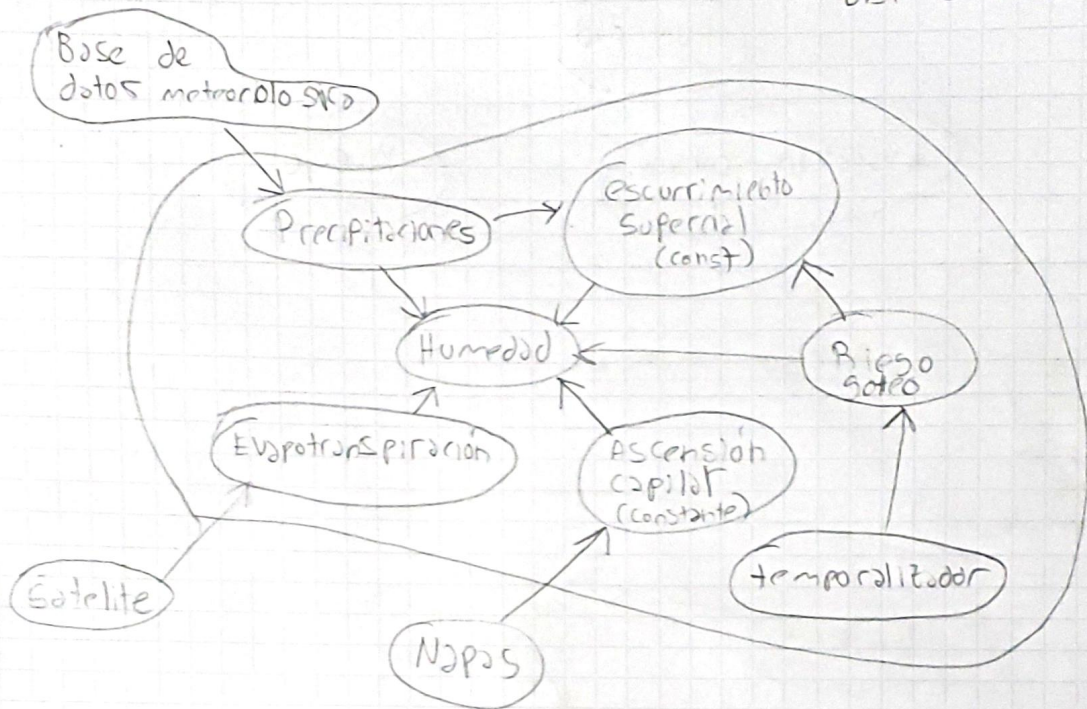 Base de
datos meteorologico
Precipitaciones
escurrimiento
(const)
Humedad
Riego
goteo
Evapotranspiración
Ascensión
capilar
(constante)
temporalizador
Satelite
Napas